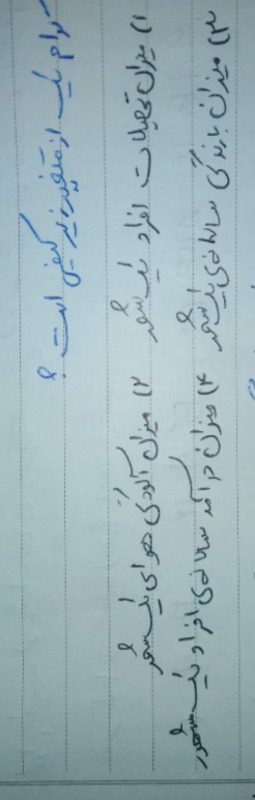 کدام یک از متغیر زیر کیفی است؟
۱) میزان تحصیلات افراد یک شهر ۲) میزان آلودگی هوای یک شهر
۳) میزان بارندگی سالانه‌ی یک شهر ۴) میزان درآمد سالانه‌ی افراد یک شهر